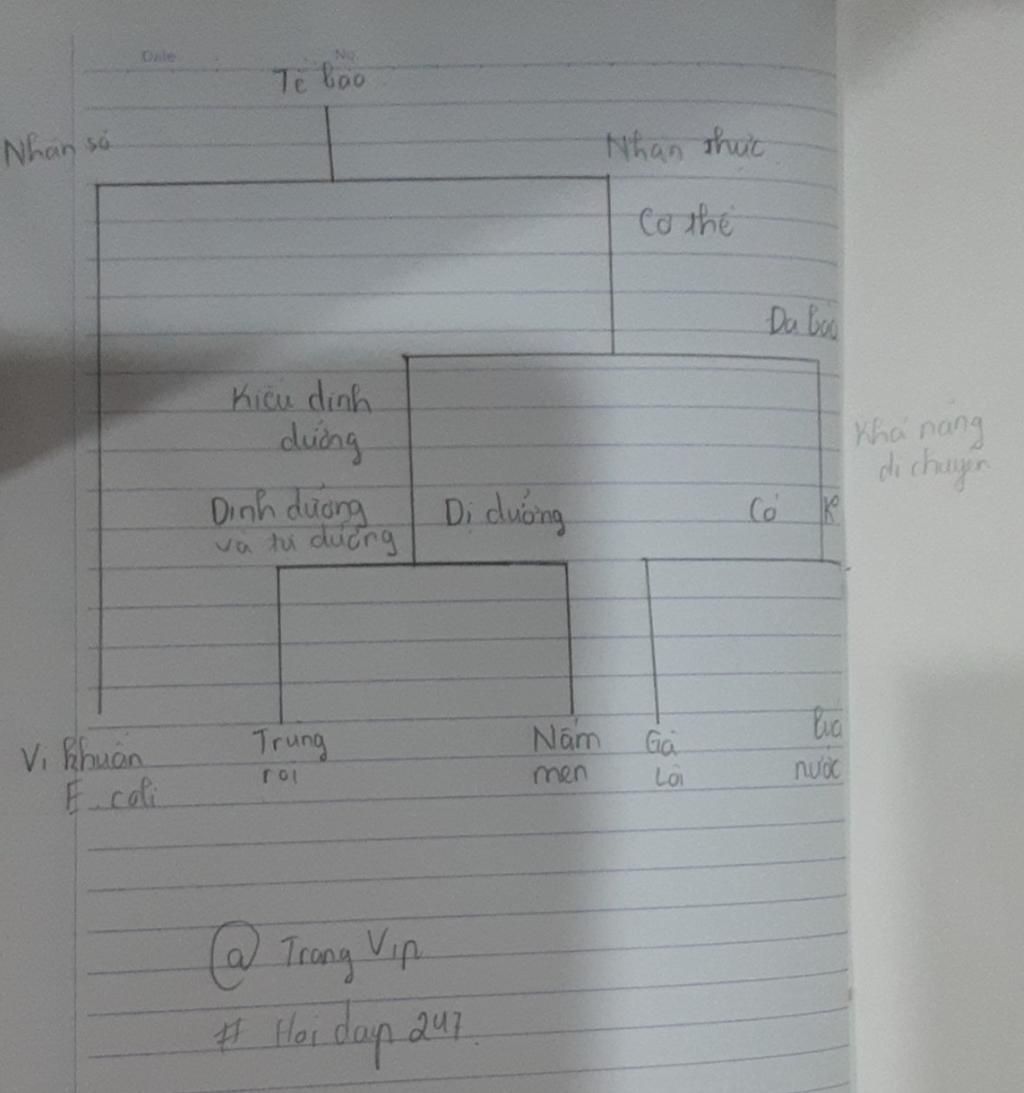 Date No
Tế bào
Nhân sơ
Nhân thực
Cơ thể
Đa bào
Kiểu dinh
dưỡng
Khả năng
di chuyển
Dinh dưỡng
và tự dưỡng
Dị dưỡng
Có
K
Vi khuẩn
E_coli
Trung
roi
Nấm
men
Gà
Lôi
nước
@ Trang Vip
# Hoi dap 247